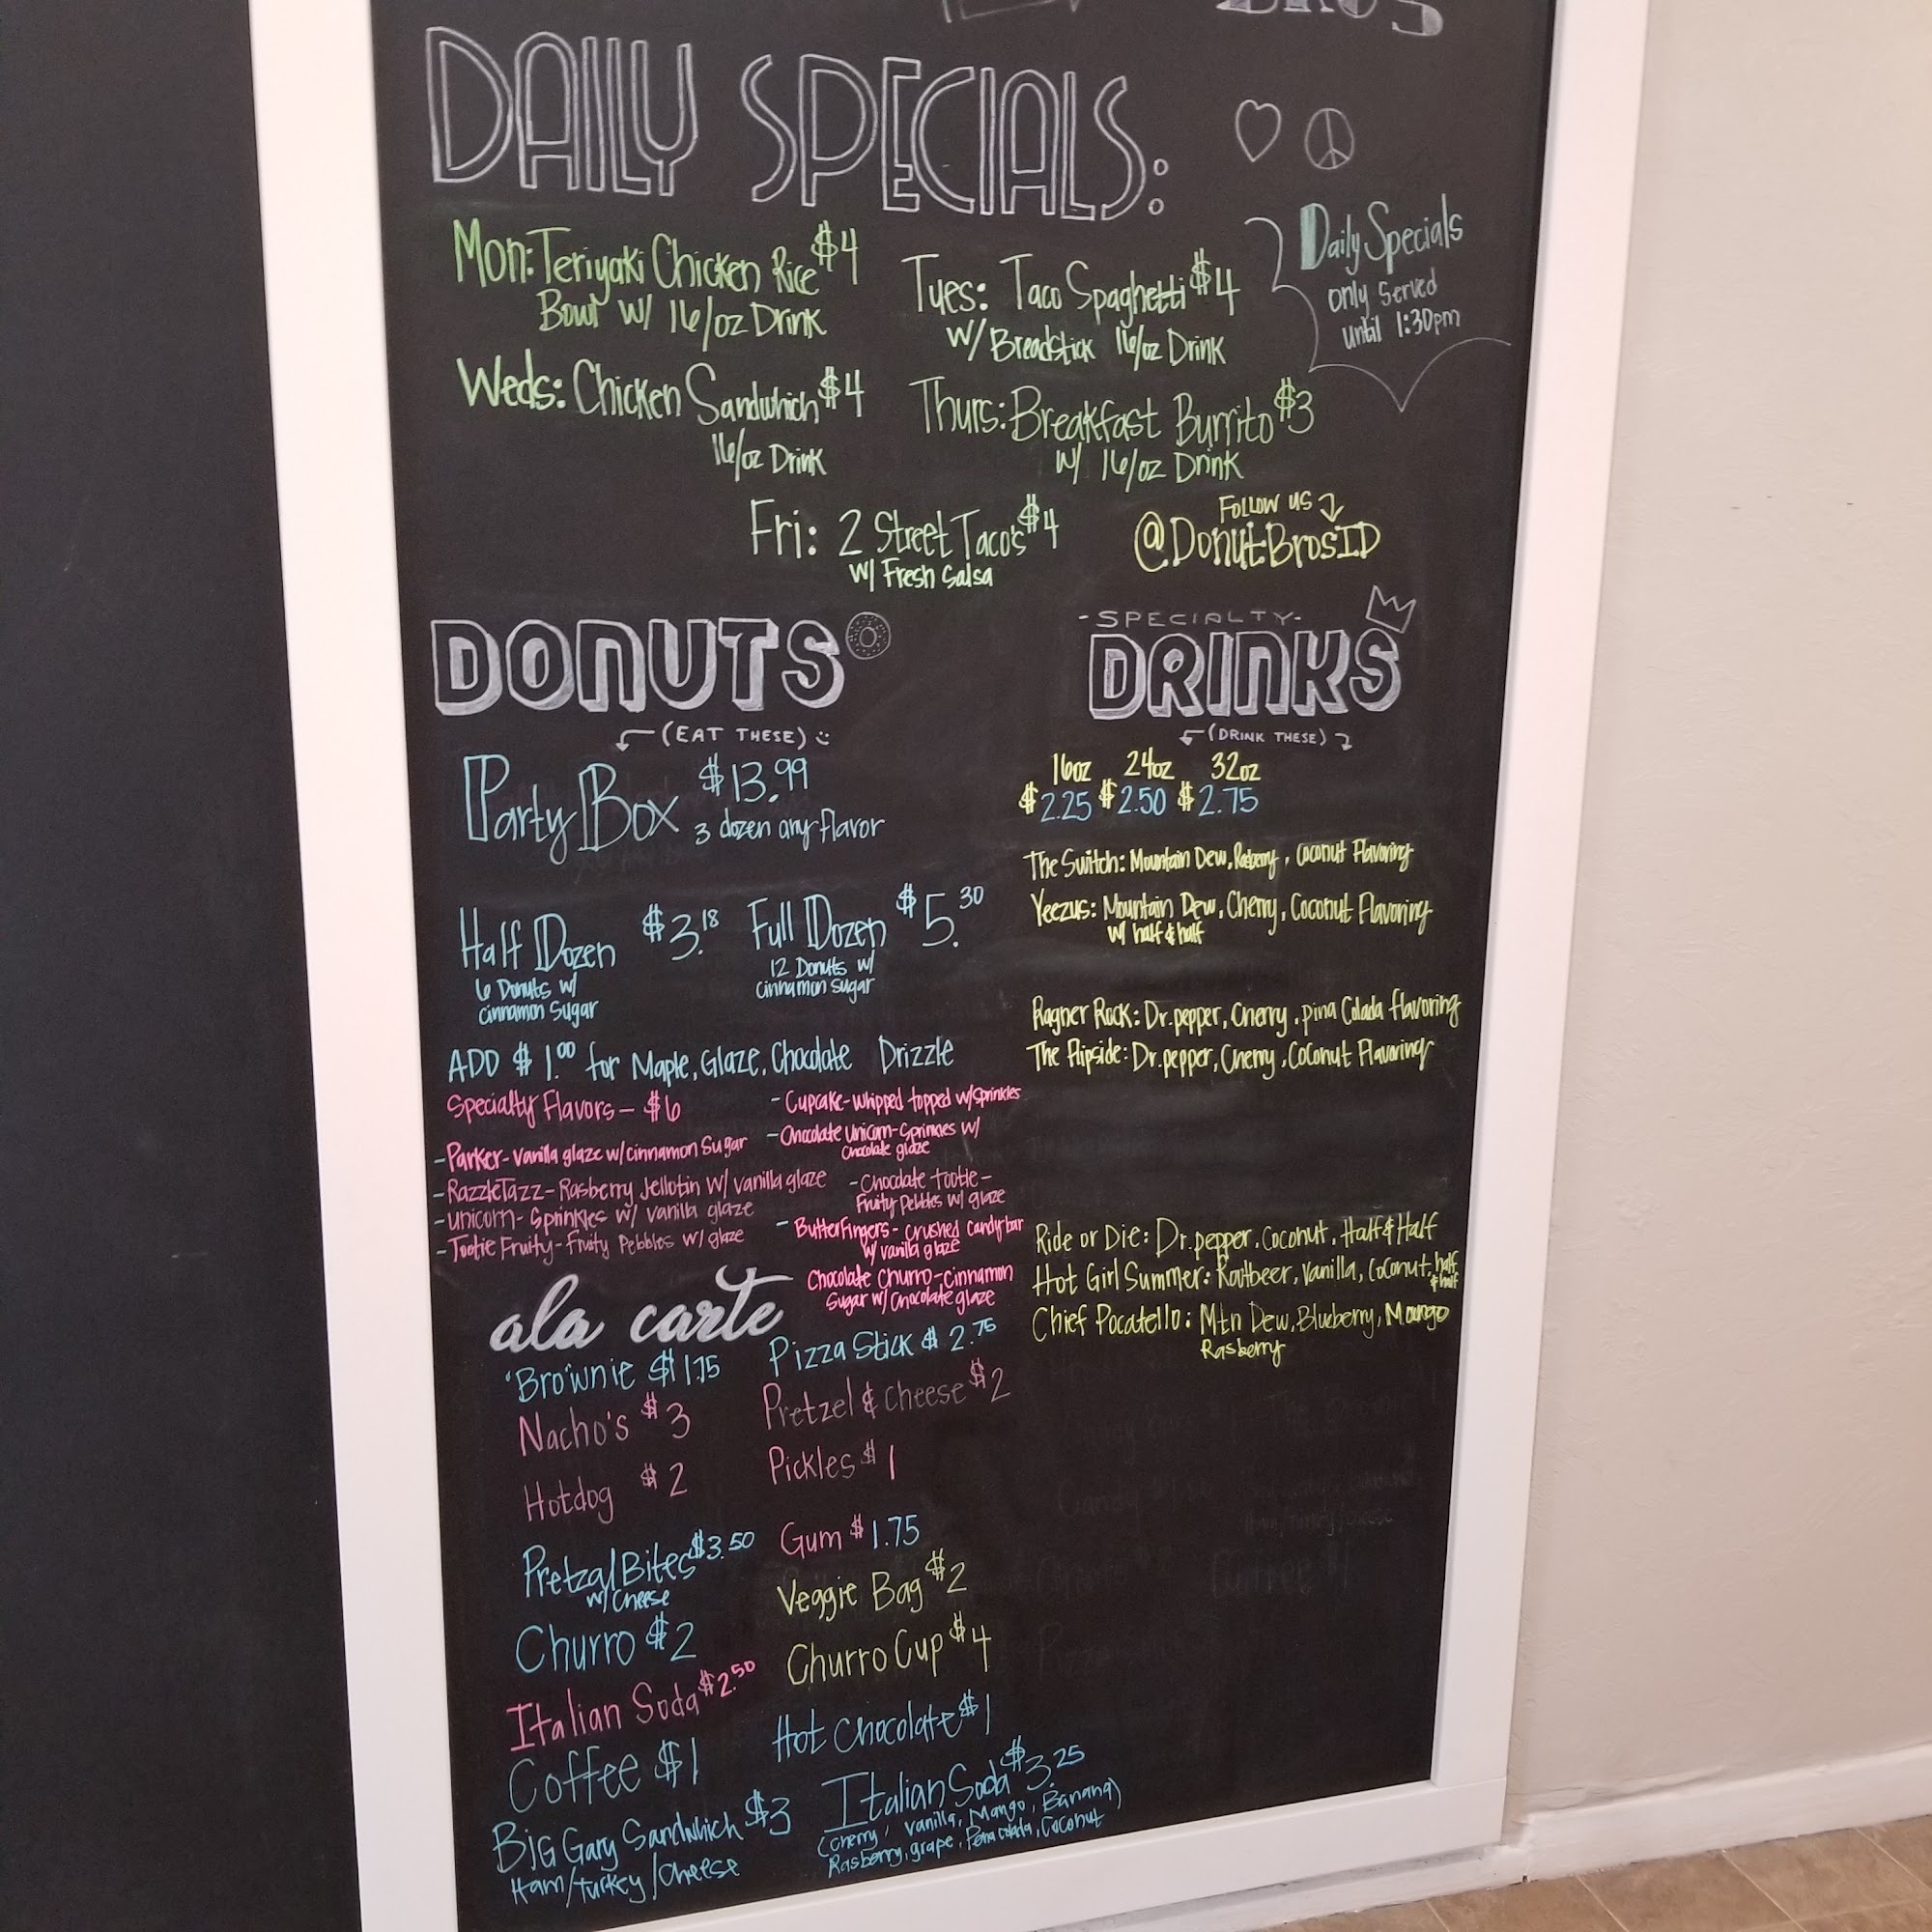 BROS
DAILY SPECIALS:
Mon: Teriyaki Chicken Rice $4
Bowl w/ 16/oz Drink
Tues: Taco Spaghetti $4
w/ Breadstick 16/oz Drink
Daily Specials
only served
until 1:30pm
Weds: Chicken Sandwhich, $4
16/oz Drink
Thurs: Breakfast Burrito $3
w/ 16/oz Drink
Fri: 2 Street Taco's $4
w/ Fresh Salsa
Follow us
@DonutBrosID
DONUTS
(EAT THESE)
Party Box $13.99
3 dozen any flavor
Half Dozen $3.18
6 Donuts w/
cinnamon Sugar
Full Dozen $5.30
12 Donuts w/
cinnamon sugar
ADD $1.00 for Maple, Glaze, Chocolate Drizzle
Specialty Flavors - $6
- Parker- vanilla glaze w/cinnamon Sugar
- RazzleTazz- Rasberry Jellotin w/ vanilla glaze
- unicorn- Sprinkles w/ vanilla glaze
- Tootie Fruity- Fruity Pebbles w/ glaze
- Cupcake- whipped topped w/sprinkles
- Chocolate Unicorn- Sprinkles w/
Chocolate glaze
- Chocolate tootie -
Fruity Pebbles w/ glaze
- ButterFingers- crushed candy bar
w/ vanilla glaze
Chocolate Churro- cinnamon
Sugar w/ chocolate glaze
-SPECIALTY-
DRINKS
(DRINK THESE)
16oz 24oz 32oz
$2.25 $2.50 $2.75
The Switch: Mountain Dew, Rasberry, Coconut Flavoring
Yeezus: Mountain Dew, Cherry, Coconut Flavoring
w/ half & half
Ragner Rock: Dr.pepper, Cherry, pina Colada flavoring
The Flipside: Dr.pepper, Cherry, Coconut Flavoring
Ride or Die: Dr.pepper, Coconut, Half & Half
Hot Girl Summer: Rootbeer, Vanilla, Coconut, half
& half
Chief Pocatello: Mtn Dew, Blueberry, Mango
Rasberry
ala carte
Brownie $1.75
Pizza Stick $2.75
Nacho's $3
Pretzel & cheese $2
Hotdog $2
Pickles $1
Pretzal Bites $3.50
w/ Cheese
Gum $1.75
Veggie Bag $2
Churro $2
Churro Cup $4
Italian Soda $2.50
Hot Chocolate $1
Coffee $1
Big Gary Sandwhich $3
Ham/Turkey/Cheese
Italian Soda $3.25
(Cherry, vanilla, Mango, Banana)
Rasberry, grape, Pena colada, Coconut